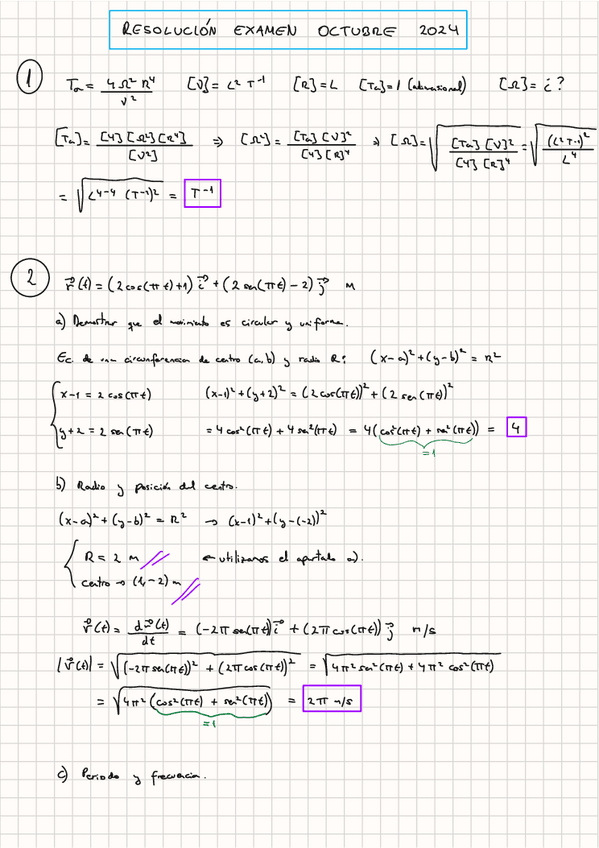 RESOLUCIÓN EXAMEN OCTUBRE 2024
1 Ta = 4 Ω² R⁴ / ν² [ν] = L² T⁻¹ [R] = L [Ta] = 1 (adimensional) [Ω] = ¿?
[Ta] = [4] [Ω²] [R⁴] / [ν²] ⇒ [Ω²] = [Ta] [ν]² / [4] [R]⁴ ⇒ [Ω] = √([Ta] [ν]² / [4] [R]⁴) = √((L² T⁻¹)² / L⁴)
= √(L⁴⁻⁴ (T⁻¹)²) = T⁻¹
2 r⃗(t) = (2 cos(πt) + 1) i⃗ + (2 sen(πt) − 2) j⃗ m
a) Demostrar que el movimiento es circular y uniforme.
Ec. de una circunferencia de centro (a, b) y radio R: (x−a)² + (y−b)² = R²
x−1 = 2 cos(πt) (x−1)² + (y+2)² = (2 cos(πt))² + (2 sen(πt))²
y+2 = 2 sen(πt) = 4 cos²(πt) + 4 sen²(πt) = 4(cos²(πt) + sen²(πt)) = 4
=1
b) Radio y posición del centro.
(x−a)² + (y−b)² = R² → (x−1)² + (y−(−2))²
R = 2 m ← utilizamos el apartado a).
centro → (1, −2) m
v⃗(t) = dr⃗(t) / dt = (−2π sen(πt)) i⃗ + (2π cos(πt)) j⃗ m/s
|v⃗(t)| = √((−2π sen(πt))² + (2π cos(πt))²) = √(4π² sen²(πt) + 4π² cos²(πt))
= √(4π² (cos²(πt) + sen²(πt))) = 2π m/s
=1
c) Periodo y frecuencia.